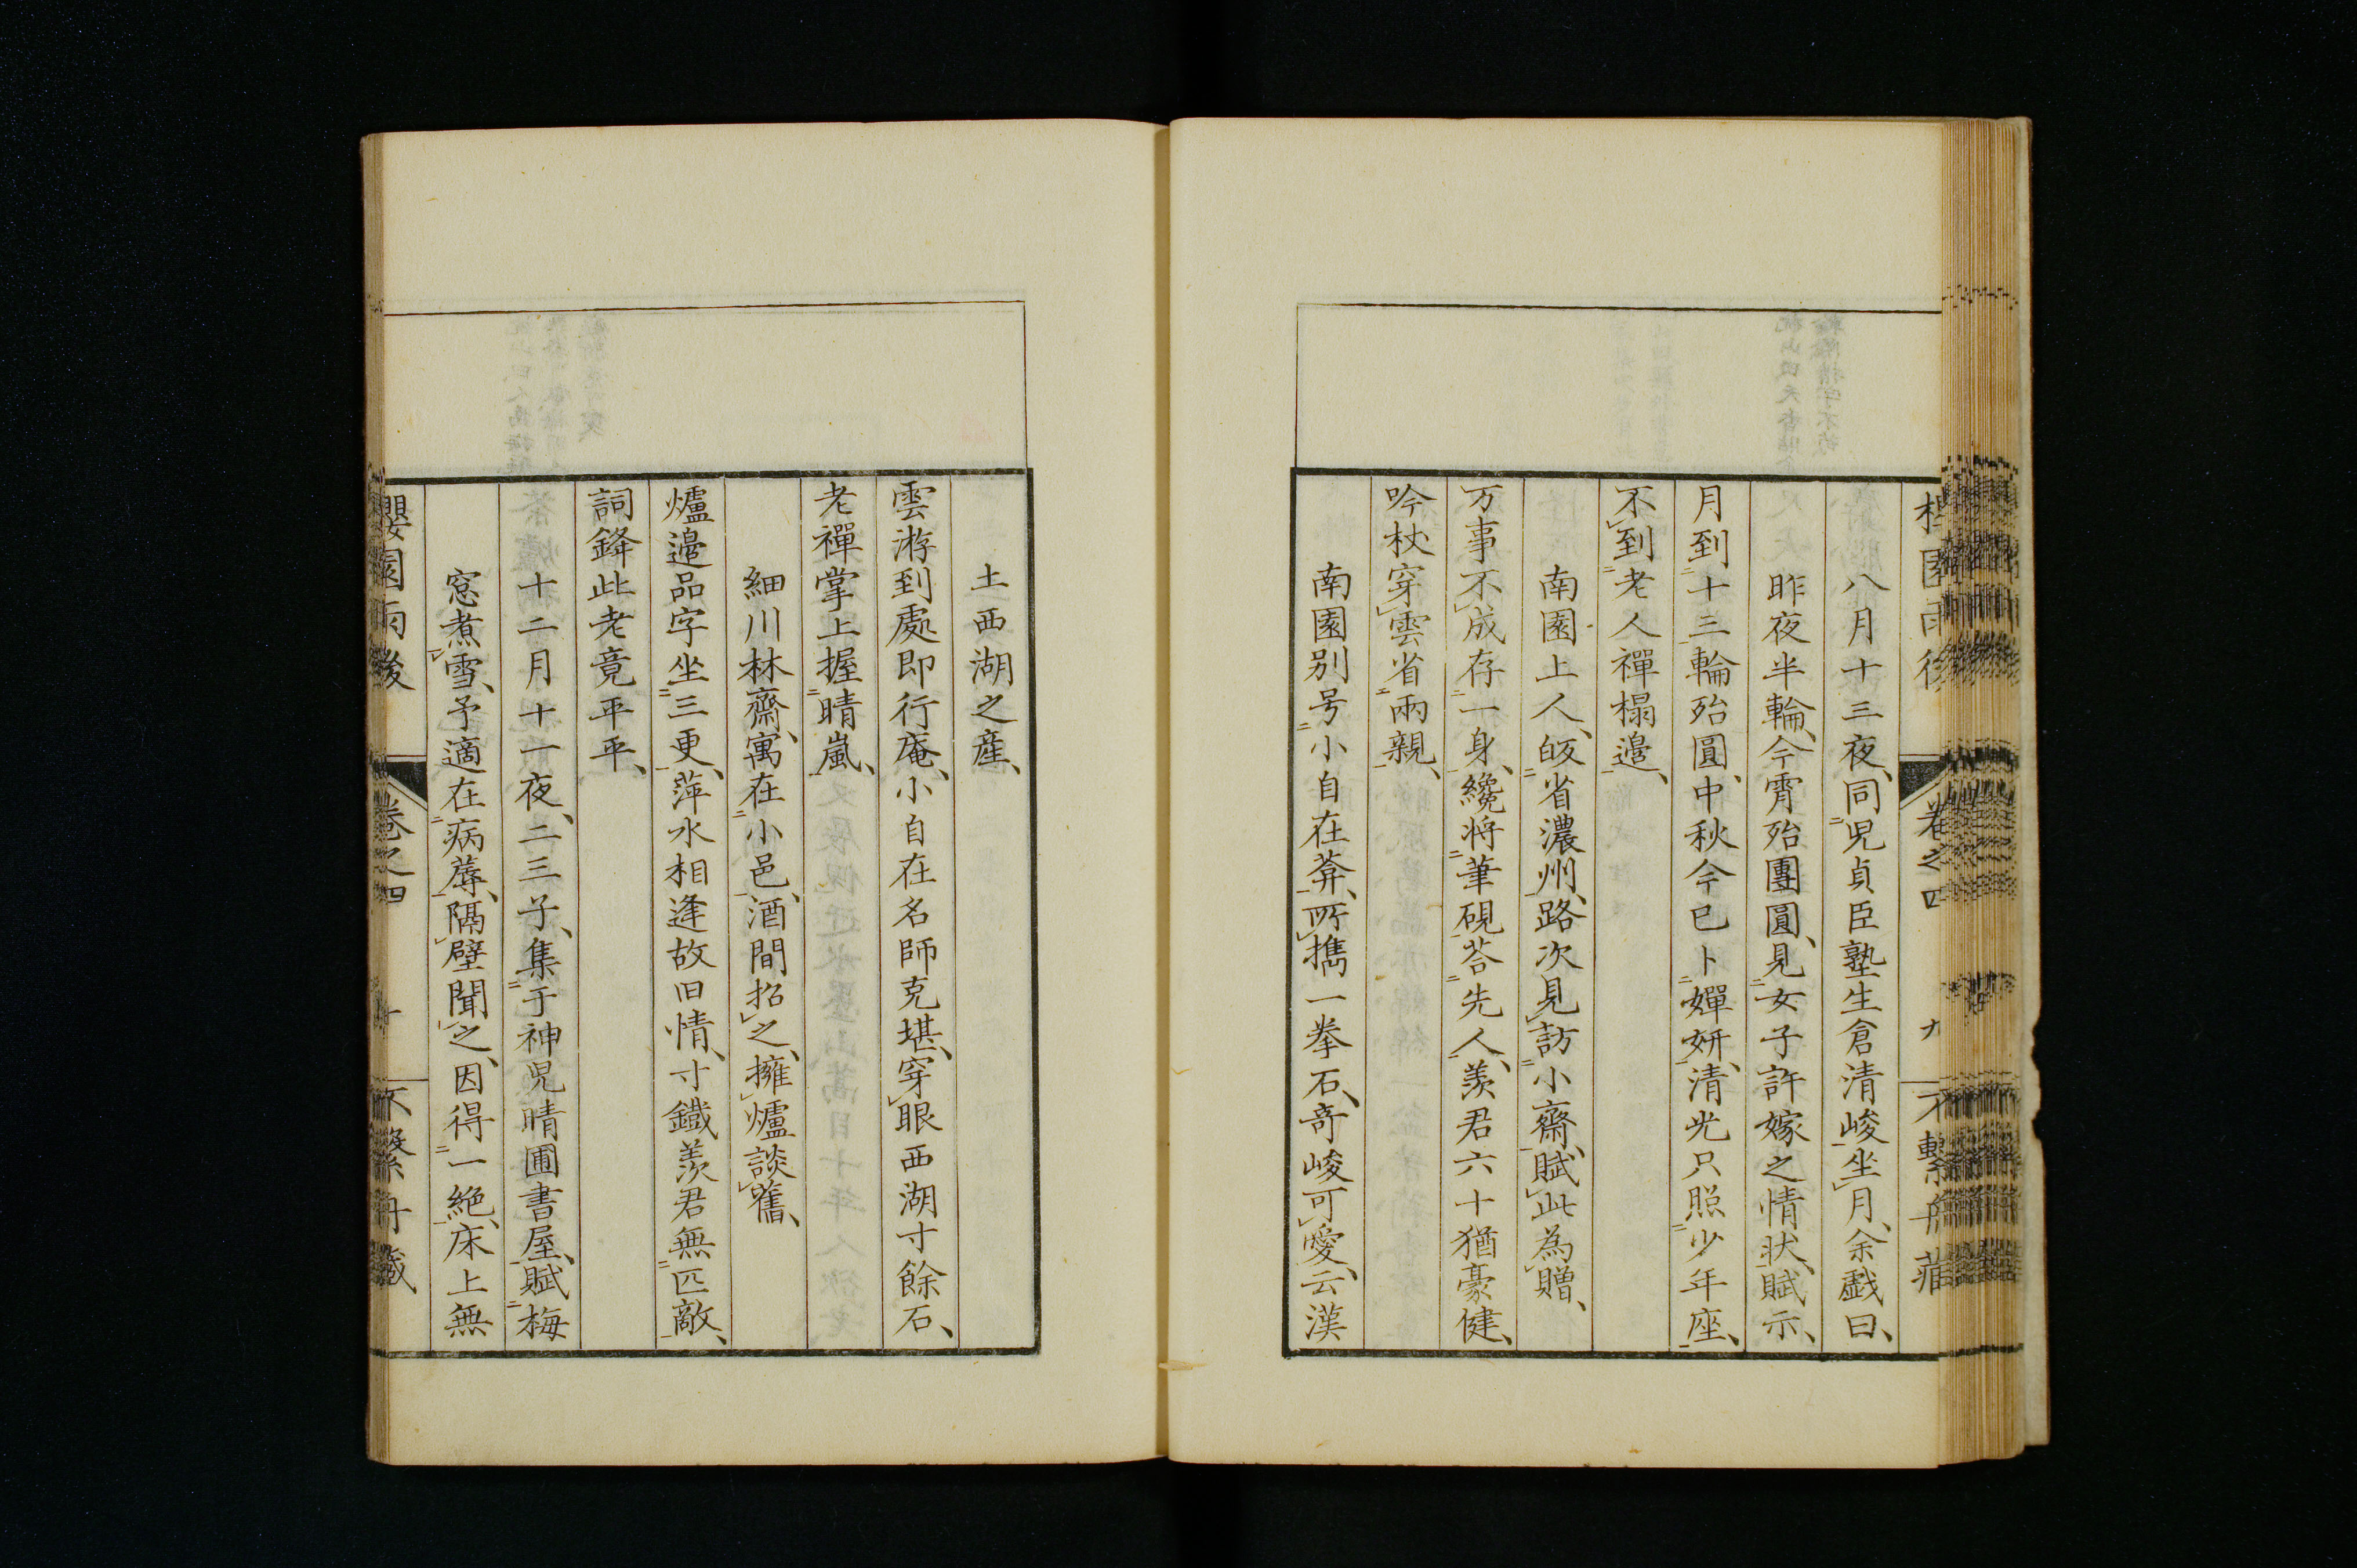 八月十三夜、同児貞臣塾生倉清峻坐月、余戯曰、
昨夜半輪、今霄殆團圓、見女子許嫁之情状、賦示、
月到十三輪殆圓、中秋今已卜嬋妍、清光只照少年座、
不到老人禪榻邉、
南園上人、皈省濃州、路次見訪小齋、賦此為贈、
万事不成存一身、纔将筆硯荅先人、羨君六十猶豪健、
吟杖穿雲省兩親、
南園別号小自在菴、所携一拳石、奇峻可愛、云漢
卷之四
九
土西湖之産、
雲游到處即行庵、小自在名師克堪、穿眼西湖寸餘石、
老禪掌上握晴嵐、
細川林齋、寓在小邑、酒間招之、擁爐談舊、
爐邉品字坐三更、萍水相逢故旧情、寸鐵羨君無匹敵、
詞鋒此老竟平平、
十二月十一夜、二三子、集于神児晴圃書屋、賦梅
窓煮雪、予適在病蓐、隔壁聞之、因得一絶、床上無
櫻園雨後
卷之四